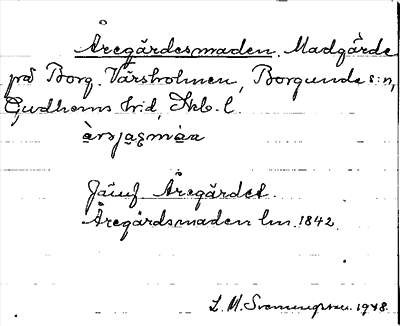 Åregärdesmaden. Madgärde
på Borg. Vårsholmen, Borgunda s:n,
Gudhems h:d, Skb. l.
årsjagmàa
Jämf Åregärdet
Åregärdsmaden lm. 1842.
L. M. 1948.